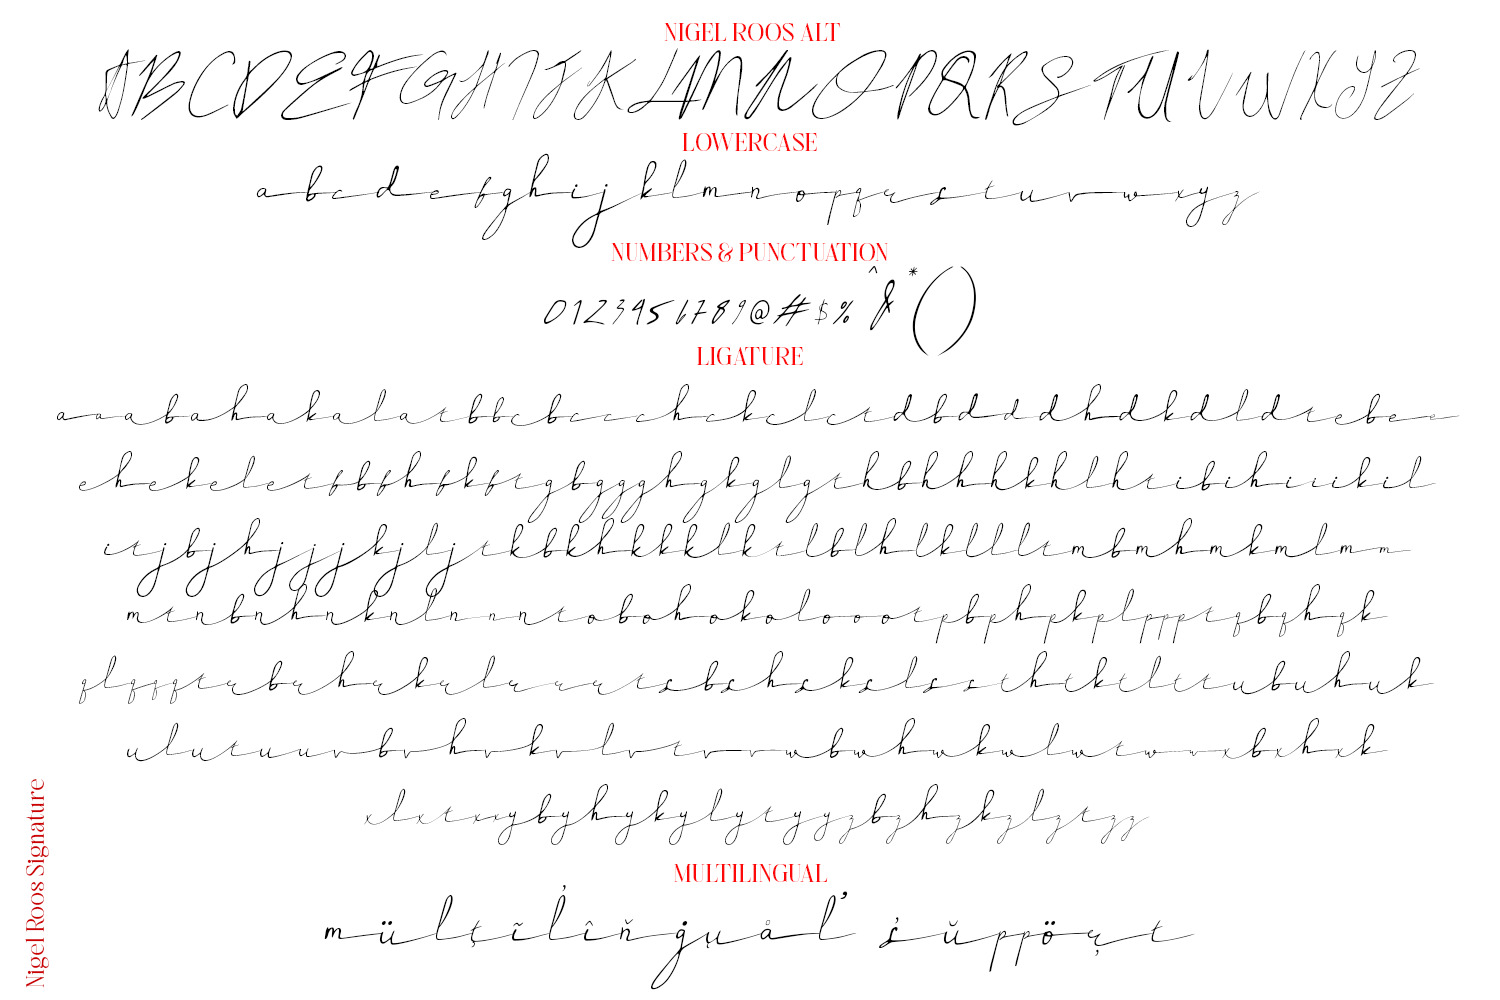 NIGEL ROOS ALT
ABCDEFGHIJKLMNOPQRSTUVWXYZ
LOWERCASE
abcdefghijklmnopqrstuvwxyz
NUMBERS & PUNCTUATION
0123456789@#$%^&*()
LIGATURE
aaabahakalatbbcbccchckclctdbdddhdkdldtebeee
ehekeletfbfhfkftgbggghgkglgthbhhhkhlhtibihiiikil
itjbjhjjjkjljtkbkhkkklktlblhlkllltmbmhmkmlmm
mtnbnhnknlnnntobohokoloootpbphpkplppptqbqhqk
qlqqqtrbrhrkrlrrrtsbshskslssthtktlttubuhuk
ulutuuvbvhvkvlvtvvwbwhwkwlwtwwxbxhxk
xlxtxxybyhykylytyyzbzhzkzlztzz
MULTILINGUAL
mülţĩl̓îňġųål’ s̓ŭppöŗt
Nigel Roos Signature